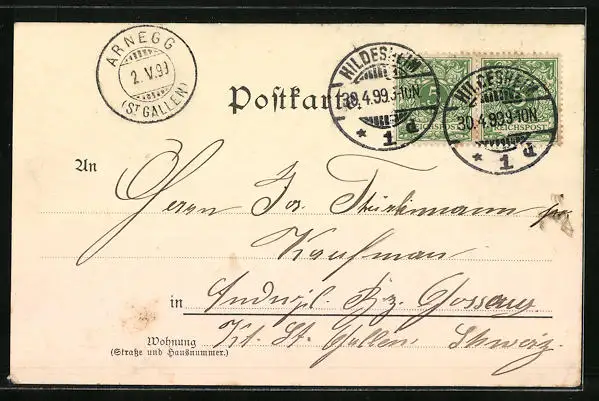 ARNEGG
2. V. 99
(ST GALLEN)
HILDESHEIM
30.4.99.9-10N
* 1 d
HILDESHEIM
30.4.99.9-10N
* 1 d
5 5
REICHSPOST REICHSPOST
Postkarte
An
Herrn Jos.
Kaufman
in Andwyl. Bz. Gossau
Kt. St. Gallen Schweiz.
Wohnung
(Straße und Hausnummer.)